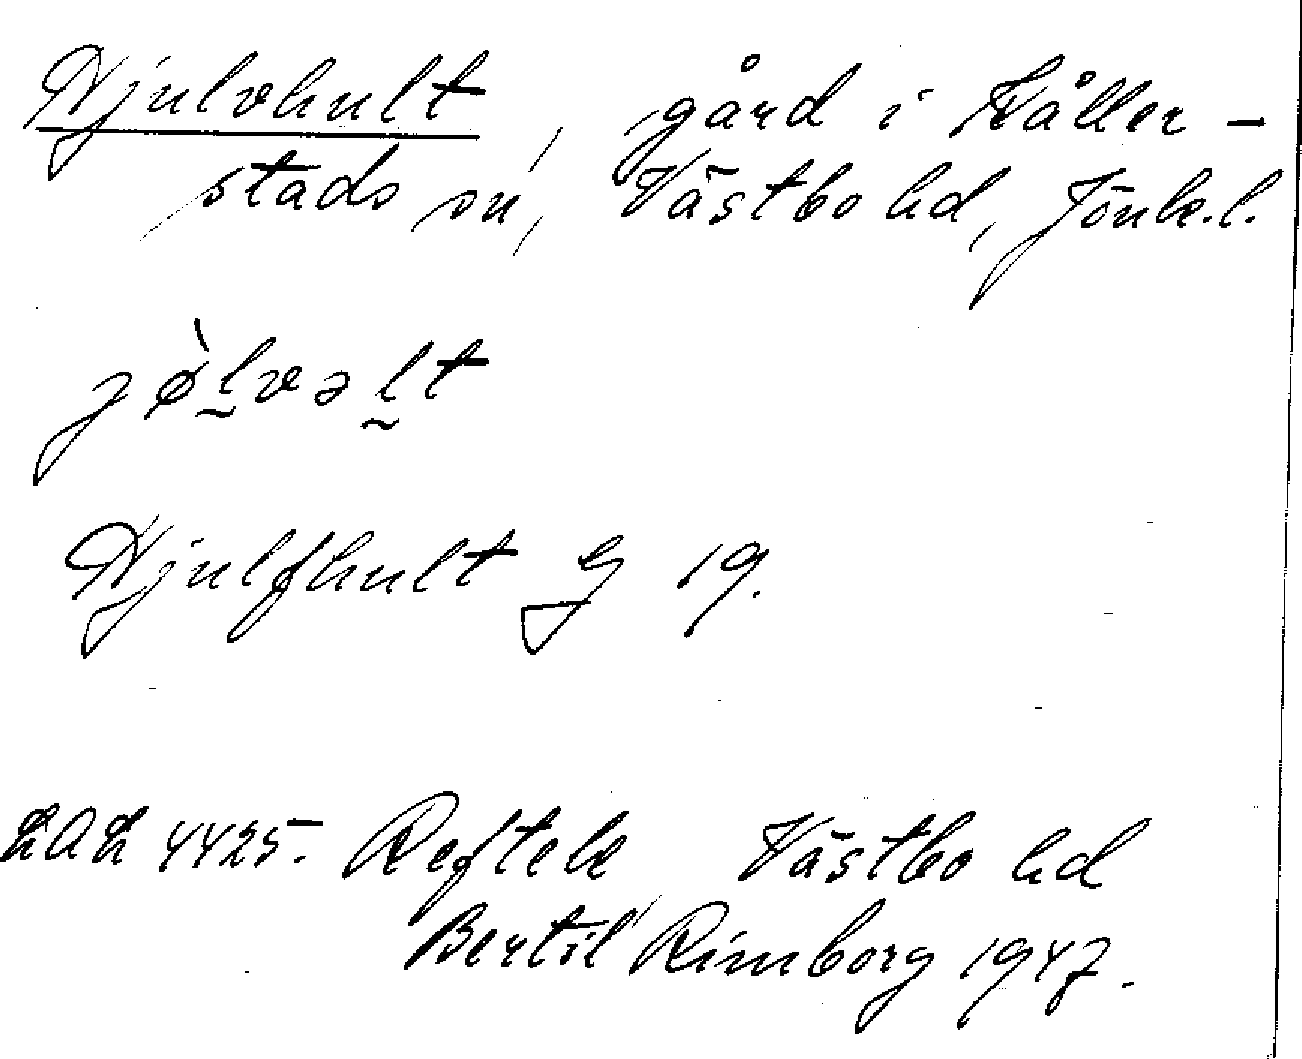 Hjulvhult, gård i Kåller-
stads sn, Västbo hd, Jönk.l.
jø̀l̰vəl̰t
Hjulfhult G 19.
4425. Reftele Västbo hd
Bertil Rimborg 1947.